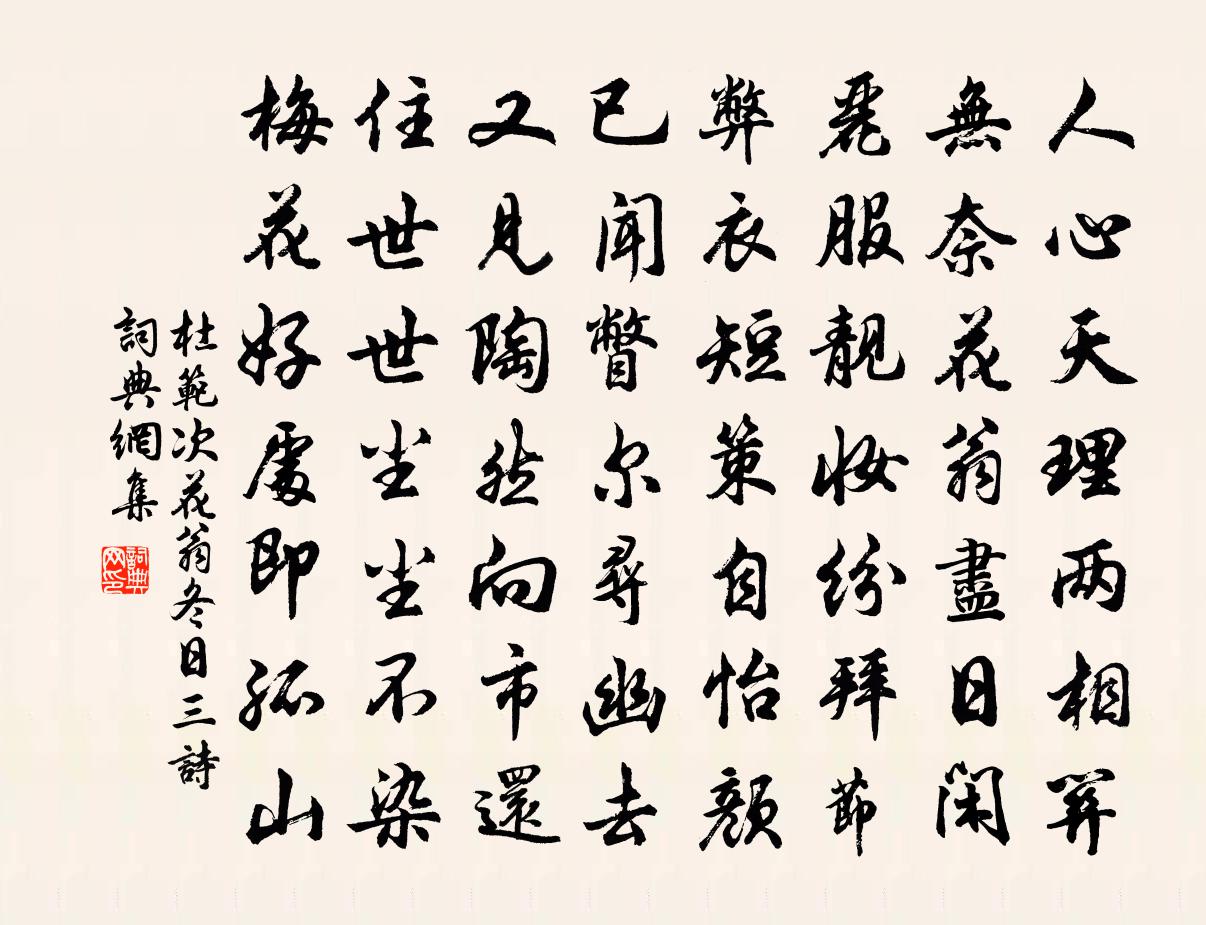 人心天理两相关
無奈花翁盡日閑
麗服靚妝紛拜節
弊衣短策自怡顏
已聞瞥尔尋幽去
又見陶然向市還
住世世尘尘不染
梅花好處即孤山
杜範次花翁冬日三詩
詞典網集
詞典网印